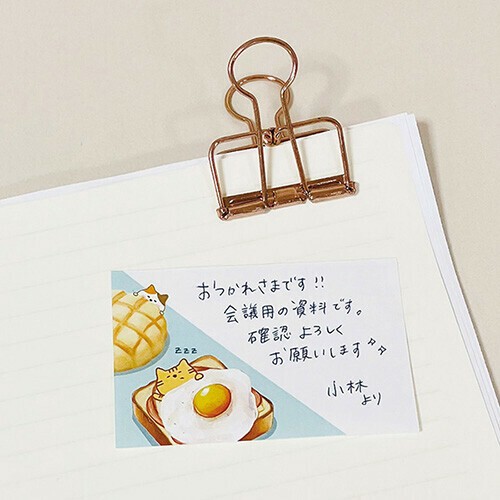 おつかれさまです!!
会議用の資料です。
確認よろしく
お願いします
小林
より
zzz